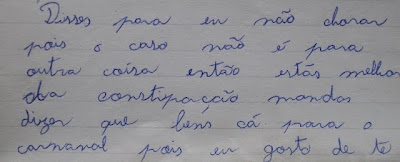 Disses para eu não chorar
pois o caso não é para
outra coisa então estás melhor
da constipação mandas
dizer que béns cá para o
carnaval pois eu gosto de te